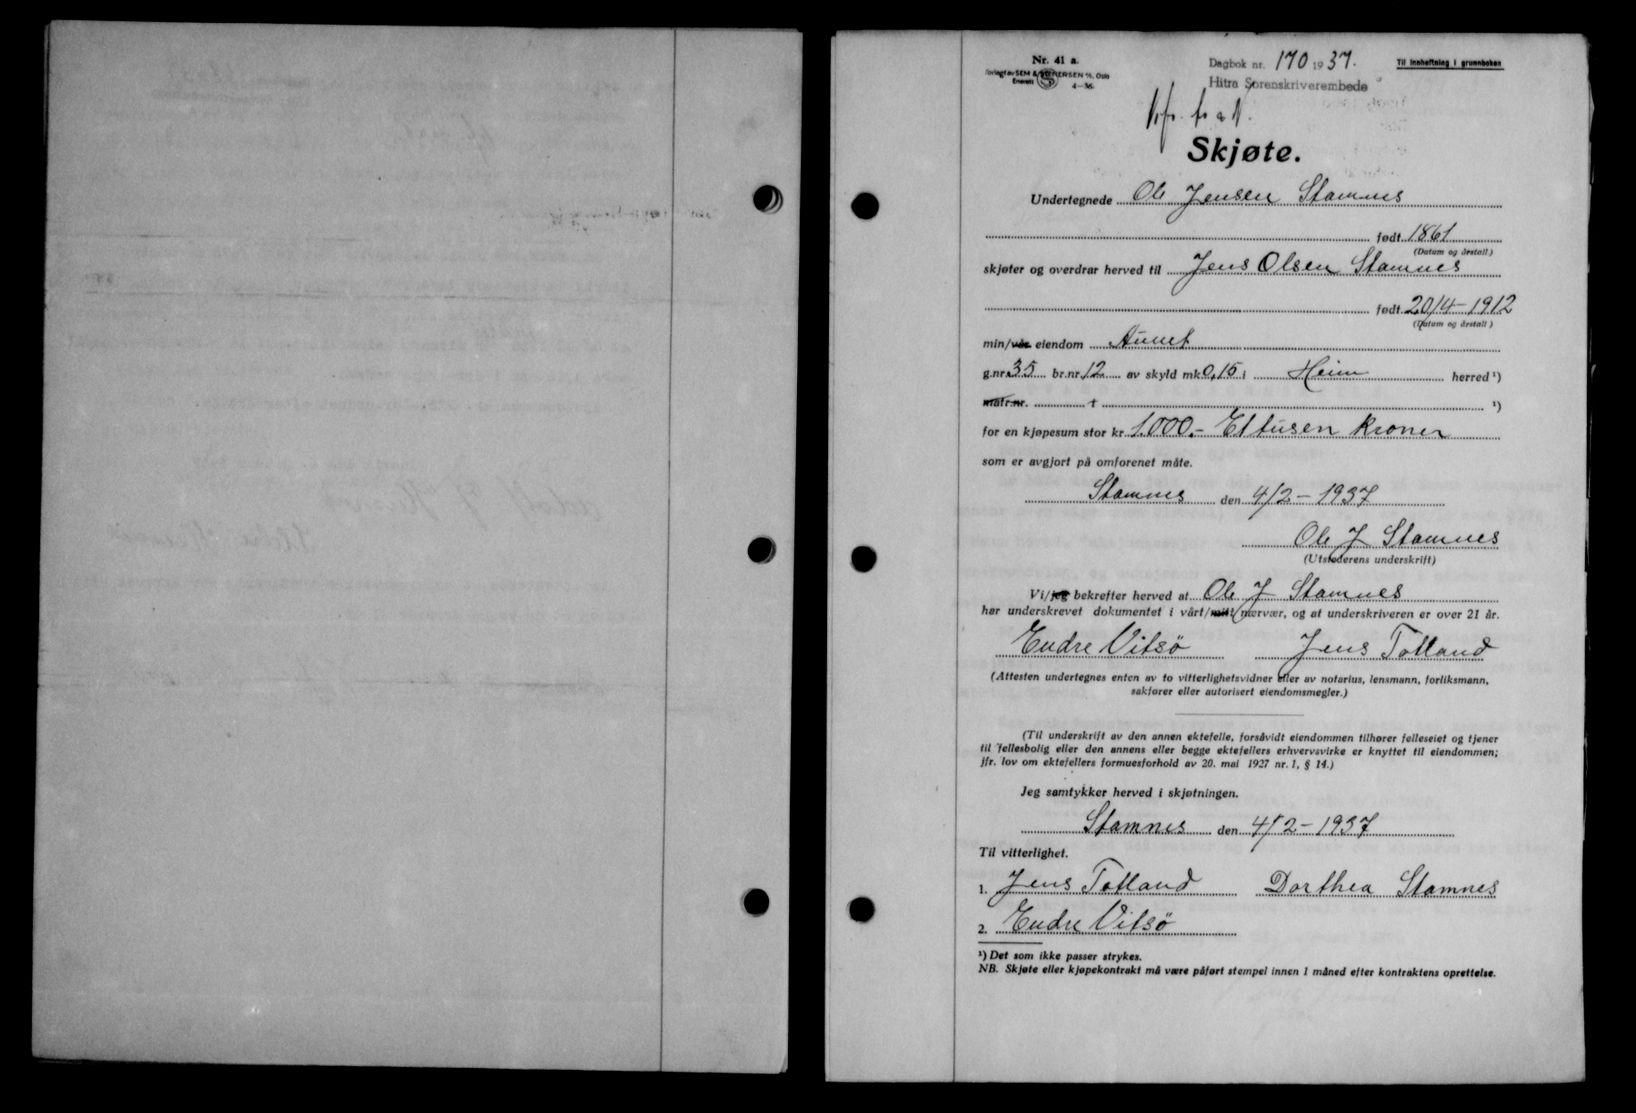 Nr. 41 a.
Forlagt av SEM & STENERSEN A/S, Oslo
Enerett S 4-36.
Dagbok nr. 170 1937.
Hitra Sorenskriverembede
Til innheftning i grunnboken
Skjøte.
Undertegnede Ole Jensen Stamnes
født 1861
(Datum og årstall)
skjøter og overdrar herved til Jens Olsen Stamnes
født 20/4-1912
(Datum og årstall)
min/vår eiendom Aunet
g.nr. 35 br.nr. 12 av skyld mk 0,15 i Heim herred ¹)
matr.nr. i ¹)
for en kjøpesum stor kr. 1.000.- Ettusen kroner
som er avgjort på omforenet måte.
Stamnes den 4/2-1937
Ole J Stamnes
(Utstederens underskrift)
Vi/jeg bekrefter herved at Ole J Stamnes
har underskrevet dokumentet i vårt/mitt nærvær, og at underskriveren er over 21 år.
Endre Vitsø Jens Totland
(Attesten undertegnes enten av to vitterlighetsvidner eller av notarius, lensmann, forliksmann,
sakfører eller autorisert eiendomsmegler.)
(Til underskrift av den annen ektefelle, forsåvidt eiendommen tilhører felleseiet og tjener
til fellesbolig eller den annens eller begge ektefellers erhvervsvirke er knyttet til eiendommen;
jfr. lov om ektefellers formuesforhold av 20. mai 1927 nr. 1, § 14.)
Jeg samtykker herved i skjøtningen.
Stamnes den 4/2-1937
Til vitterlighet.
1. Jens Totland Dorthea Stamnes
2. Endre Vitsø
¹) Det som ikke passer strykes.
NB. Skjøte eller kjøpekontrakt må være påført stempel innen 1 måned efter kontraktens oprettelse.